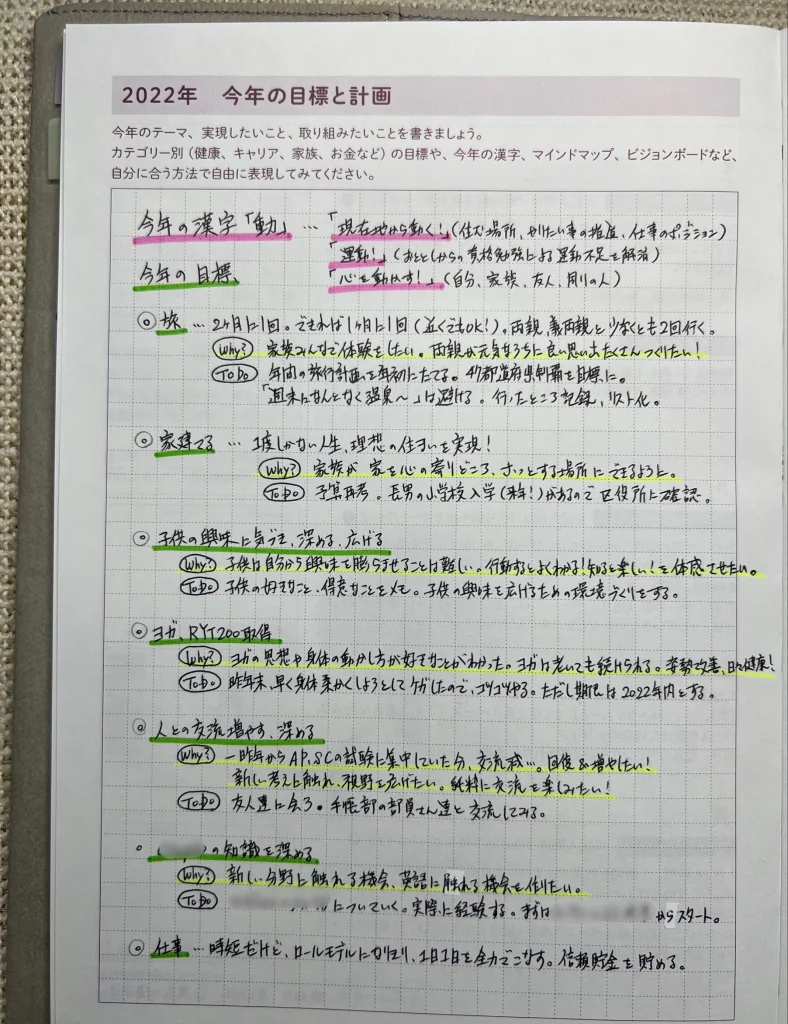 2022年 今年の目標と計画
今年のテーマ、実現したいこと、取り組みたいことを書きましょう。
カテゴリー別（健康、キャリア、家族、お金など）の目標や、今年の漢字、マインドマップ、ビジョンボードなど、
自分に合う方法で自由に表現してみてください。
今年の漢字「動」 … 「現在地から動く!」(住む場所、やりたい事の推進、仕事のポジション)
「運動!」(おととしからの資格勉強による運動不足を解消)
今年の目標、 「心を動かす!」(自分、家族、友人、周りの人)
◎ 旅 … 2ヶ月に1回。できれば1ヶ月に1回 (近くでもOK!)。両親、義両親と少なくとも2回行く。
Why? 家族みんなで体験をしたい。両親が元気なうちに良い思い出たくさんつくりたい!
ToDo 年間の旅行計画を年初にたてる。47都道府県制覇を目標に。
「週末になんとなく温泉〜」は避ける。行ったところ記録、リスト化。
◎ 家建てる … 1度しかない人生、理想の住まいを実現!
Why? 家族が家を心の寄りどころ、ホッとする場所にできるように。
ToDo 予算再考。長男の小学校入学(来年!)があるので区役所に確認。
◎ 子供の興味に気づき、深める、広げる
Why? 子供は自分から興味を膨らませることは難しい。行動するとよくわかる!知ると楽しい!を体感させたい。
ToDo 子供の好きなこと、得意なことをメモ。子供の興味を広げるための環境づくりをする。
◎ ヨガ、RYT200取得
Why? ヨガの思想や身体の動かし方が好きなことがわかった。ヨガは老いても続けられる。姿勢改善、日々健康!
ToDo 昨年末、早く身体柔かくしようとしてケガしたので、コツコツやる。ただし期限は2022年内とする。
◎ 人との交流増やす、深める
Why? 一昨年からAP、SCの試験に集中していた分、交流減…。回復&増やしたい!
新しい考えに触れ、視野を広げたい。純粋に交流を楽しみたい!
ToDo 友人達に会う。手帳部の部員さん達と交流してみる。
の知識を深める
Why? 新しい分野に触れる機会、英語に触れる機会を作りたい。
ToDo についていく。実際に経験する。まずは からスタート。
◎ 仕事 … 時短だけど、ロールモデルになれるより、1日1日を全力でこなす。信頼貯金を貯める。